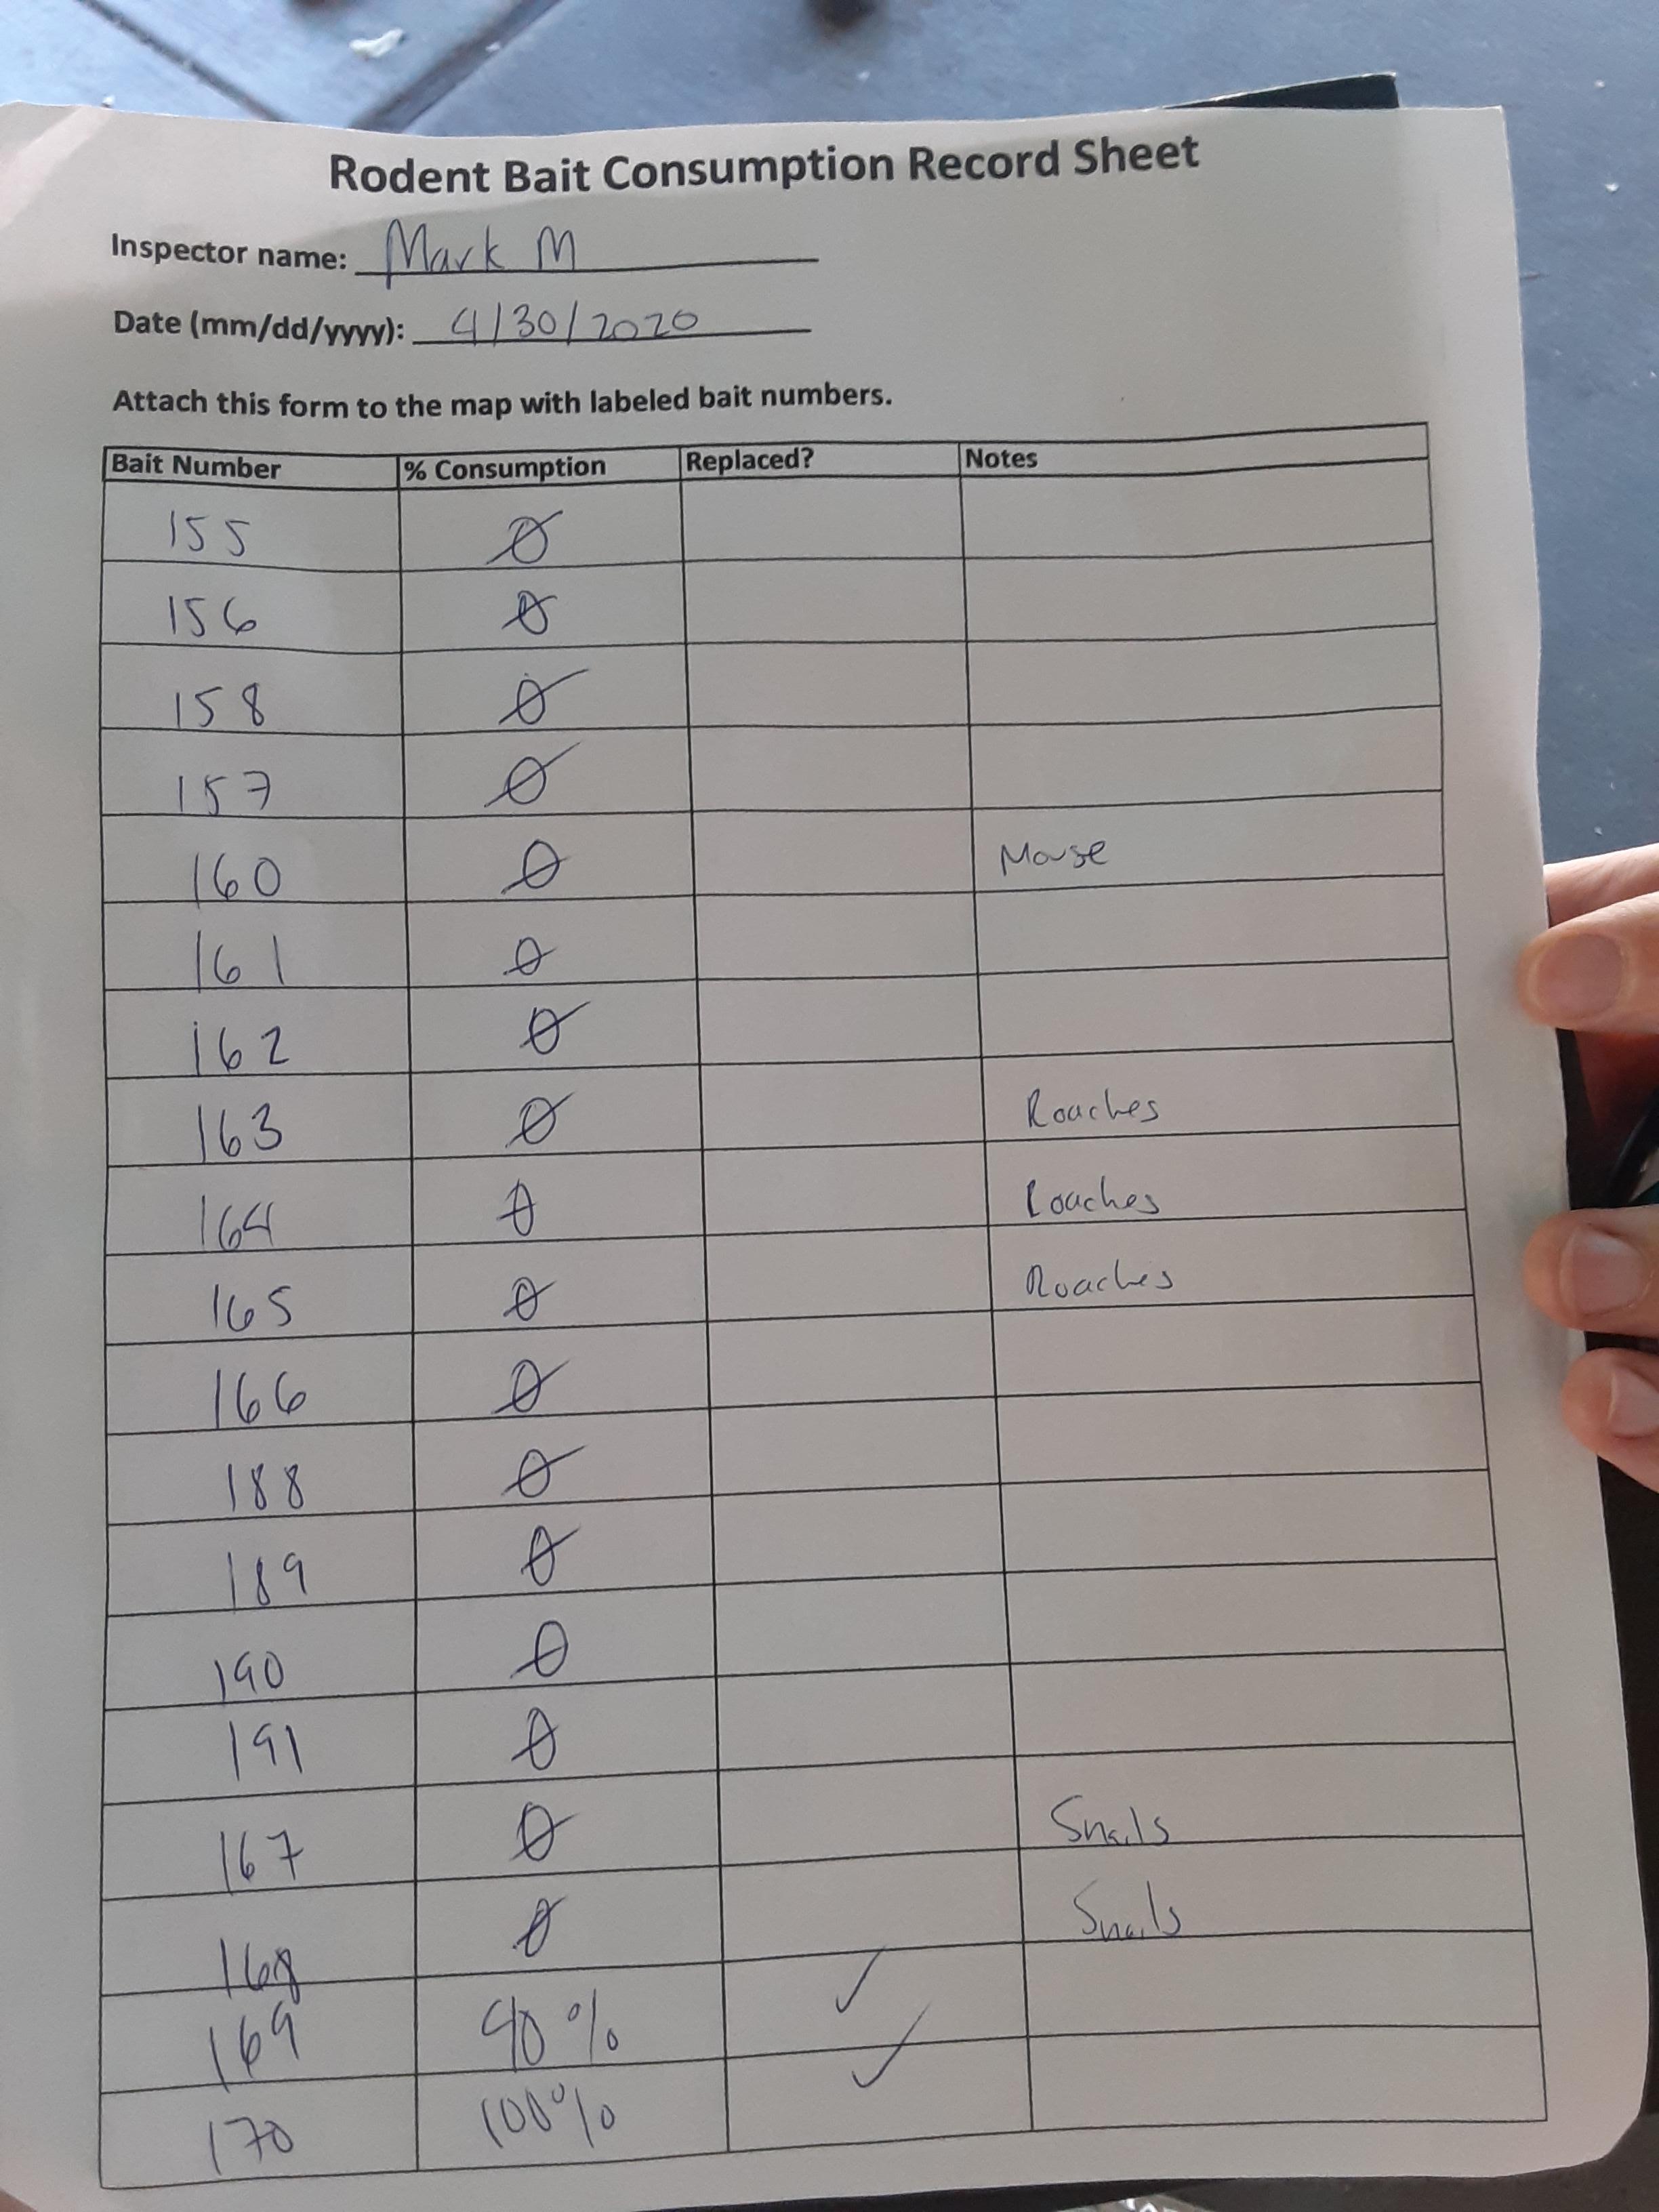 Rodent Bait Consumption Record Sheet
Inspector name: Mark M
Date (mm/dd/yyyy): 4/30/2020
Attach this form to the map with labeled bait numbers.
Bait Number % Consumption Replaced? Notes
155 Ø
156 Ø
158 Ø
157 Ø
160 Ø Mouse
161 Ø
162 Ø
163 Ø Roaches
164 Ø Roaches
165 Ø Roaches
166 Ø
188 Ø
189 Ø
190 Ø
191 Ø
167 Ø Snails
168 Ø Snails
169 ✓
170 100% ✓